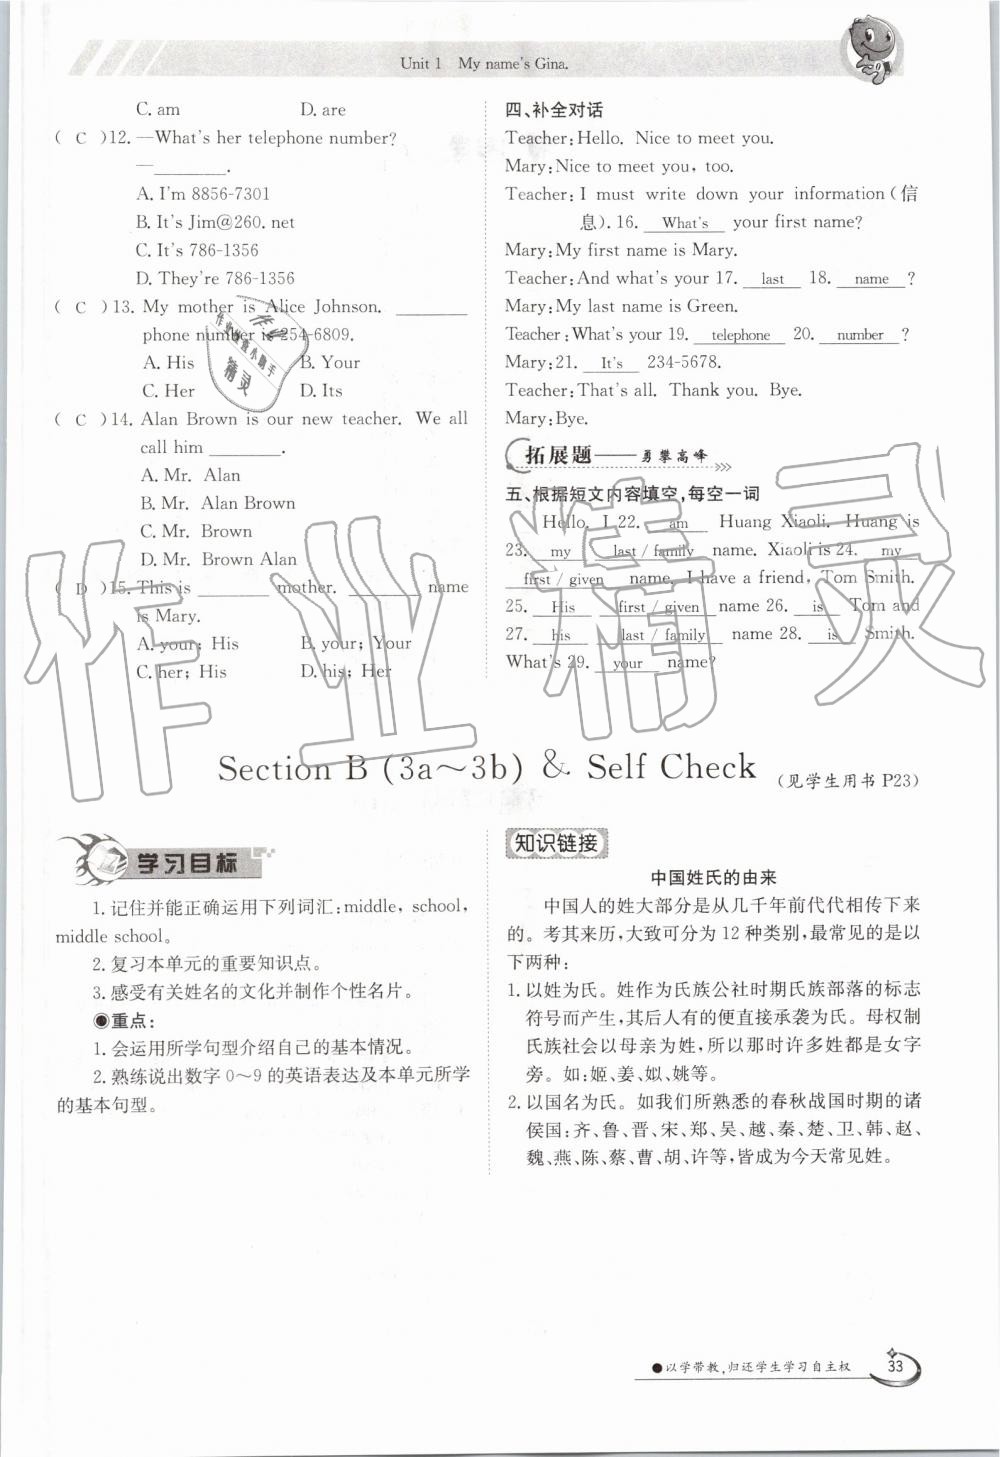 Unit 1 My name's Gina.
C. am D. are
( C )12. —What's her telephone number?
—________.
A. I'm 8856-7301
B. It's Jim@260. net
C. It's 786-1356
D. They're 786-1356
( C )13. My mother is Alice Johnson. ________
phone number is 254-6809.
A. His B. Your
C. Her D. Its
( C )14. Alan Brown is our new teacher. We all
call him ________.
A. Mr. Alan
B. Mr. Alan Brown
C. Mr. Brown
D. Mr. Brown Alan
( D )15. This is ________ mother. ________ name
is Mary.
A. your; His B. your; Your
C. her; His D. his; Her
四、补全对话
Teacher: Hello. Nice to meet you.
Mary: Nice to meet you, too.
Teacher: I must write down your information(信
息). 16. What's your first name?
Mary: My first name is Mary.
Teacher: And what's your 17. last 18. name ?
Mary: My last name is Green.
Teacher: What's your 19. telephone 20. number ?
Mary: 21. It's 234-5678.
Teacher: That's all. Thank you. Bye.
Mary: Bye.
拓展题——勇攀高峰
五、根据短文内容填空,每空一词
Hello. I 22. am Huang Xiaoli. Huang is
23. my last / family name. Xiaoli is 24. my
first / given name. I have a friend, Tom Smith.
25. His first / given name 26. is Tom and
27. his last / family name 28. is Smith.
What's 29. your name?
作业精灵
Section B (3a～3b) & Self Check (见学生用书 P23)
学习目标
1. 记住并能正确运用下列词汇: middle, school,
middle school。
2. 复习本单元的重要知识点。
3. 感受有关姓名的文化并制作个性名片。
重点:
1. 会运用所学句型介绍自己的基本情况。
2. 熟练说出数字 0～9 的英语表达及本单元所学
的基本句型。
知识链接
中国姓氏的由来
中国人的姓大部分是从几千年前代代相传下来
的。考其来历,大致可分为 12 种类别,最常见的是以
下两种:
1. 以姓为氏。姓作为氏族公社时期氏族部落的标志
符号而产生,其后人有的便直接承袭为氏。母权制
氏族社会以母亲为姓,所以那时许多姓都是女字
旁。如:姬、姜、姒、姚等。
2. 以国名为氏。如我们所熟悉的春秋战国时期的诸
侯国:齐、鲁、晋、宋、郑、吴、越、秦、楚、卫、韩、赵、
魏、燕、陈、蔡、曹、胡、许等,皆成为今天常见姓。
●以学带教,归还学生学习自主权 33